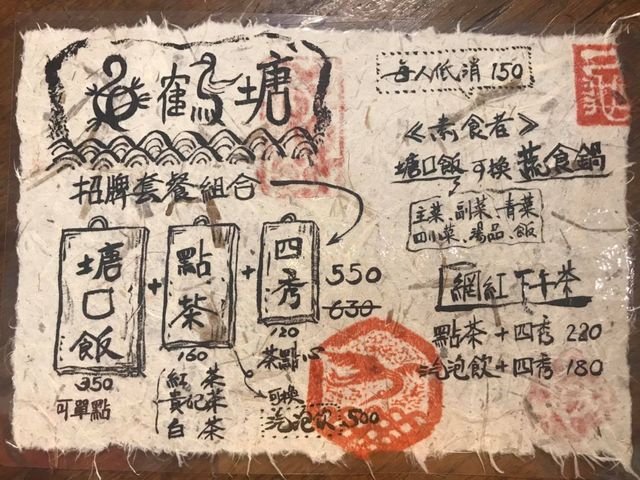 鶴塘
招牌套餐組合
塘口飯
350
可單點
+
點茶
160
紅茶
貴妃茶
白茶
+
四秀
120
茶點心
550
630
可換
汽泡飲 500
每人低消150
《素食者》
塘口飯可換蔬食鍋
主菜、副菜、青菜
四川菜、湯品、飯
網紅下午茶
點茶+四秀 220
汽泡飲+四秀 180